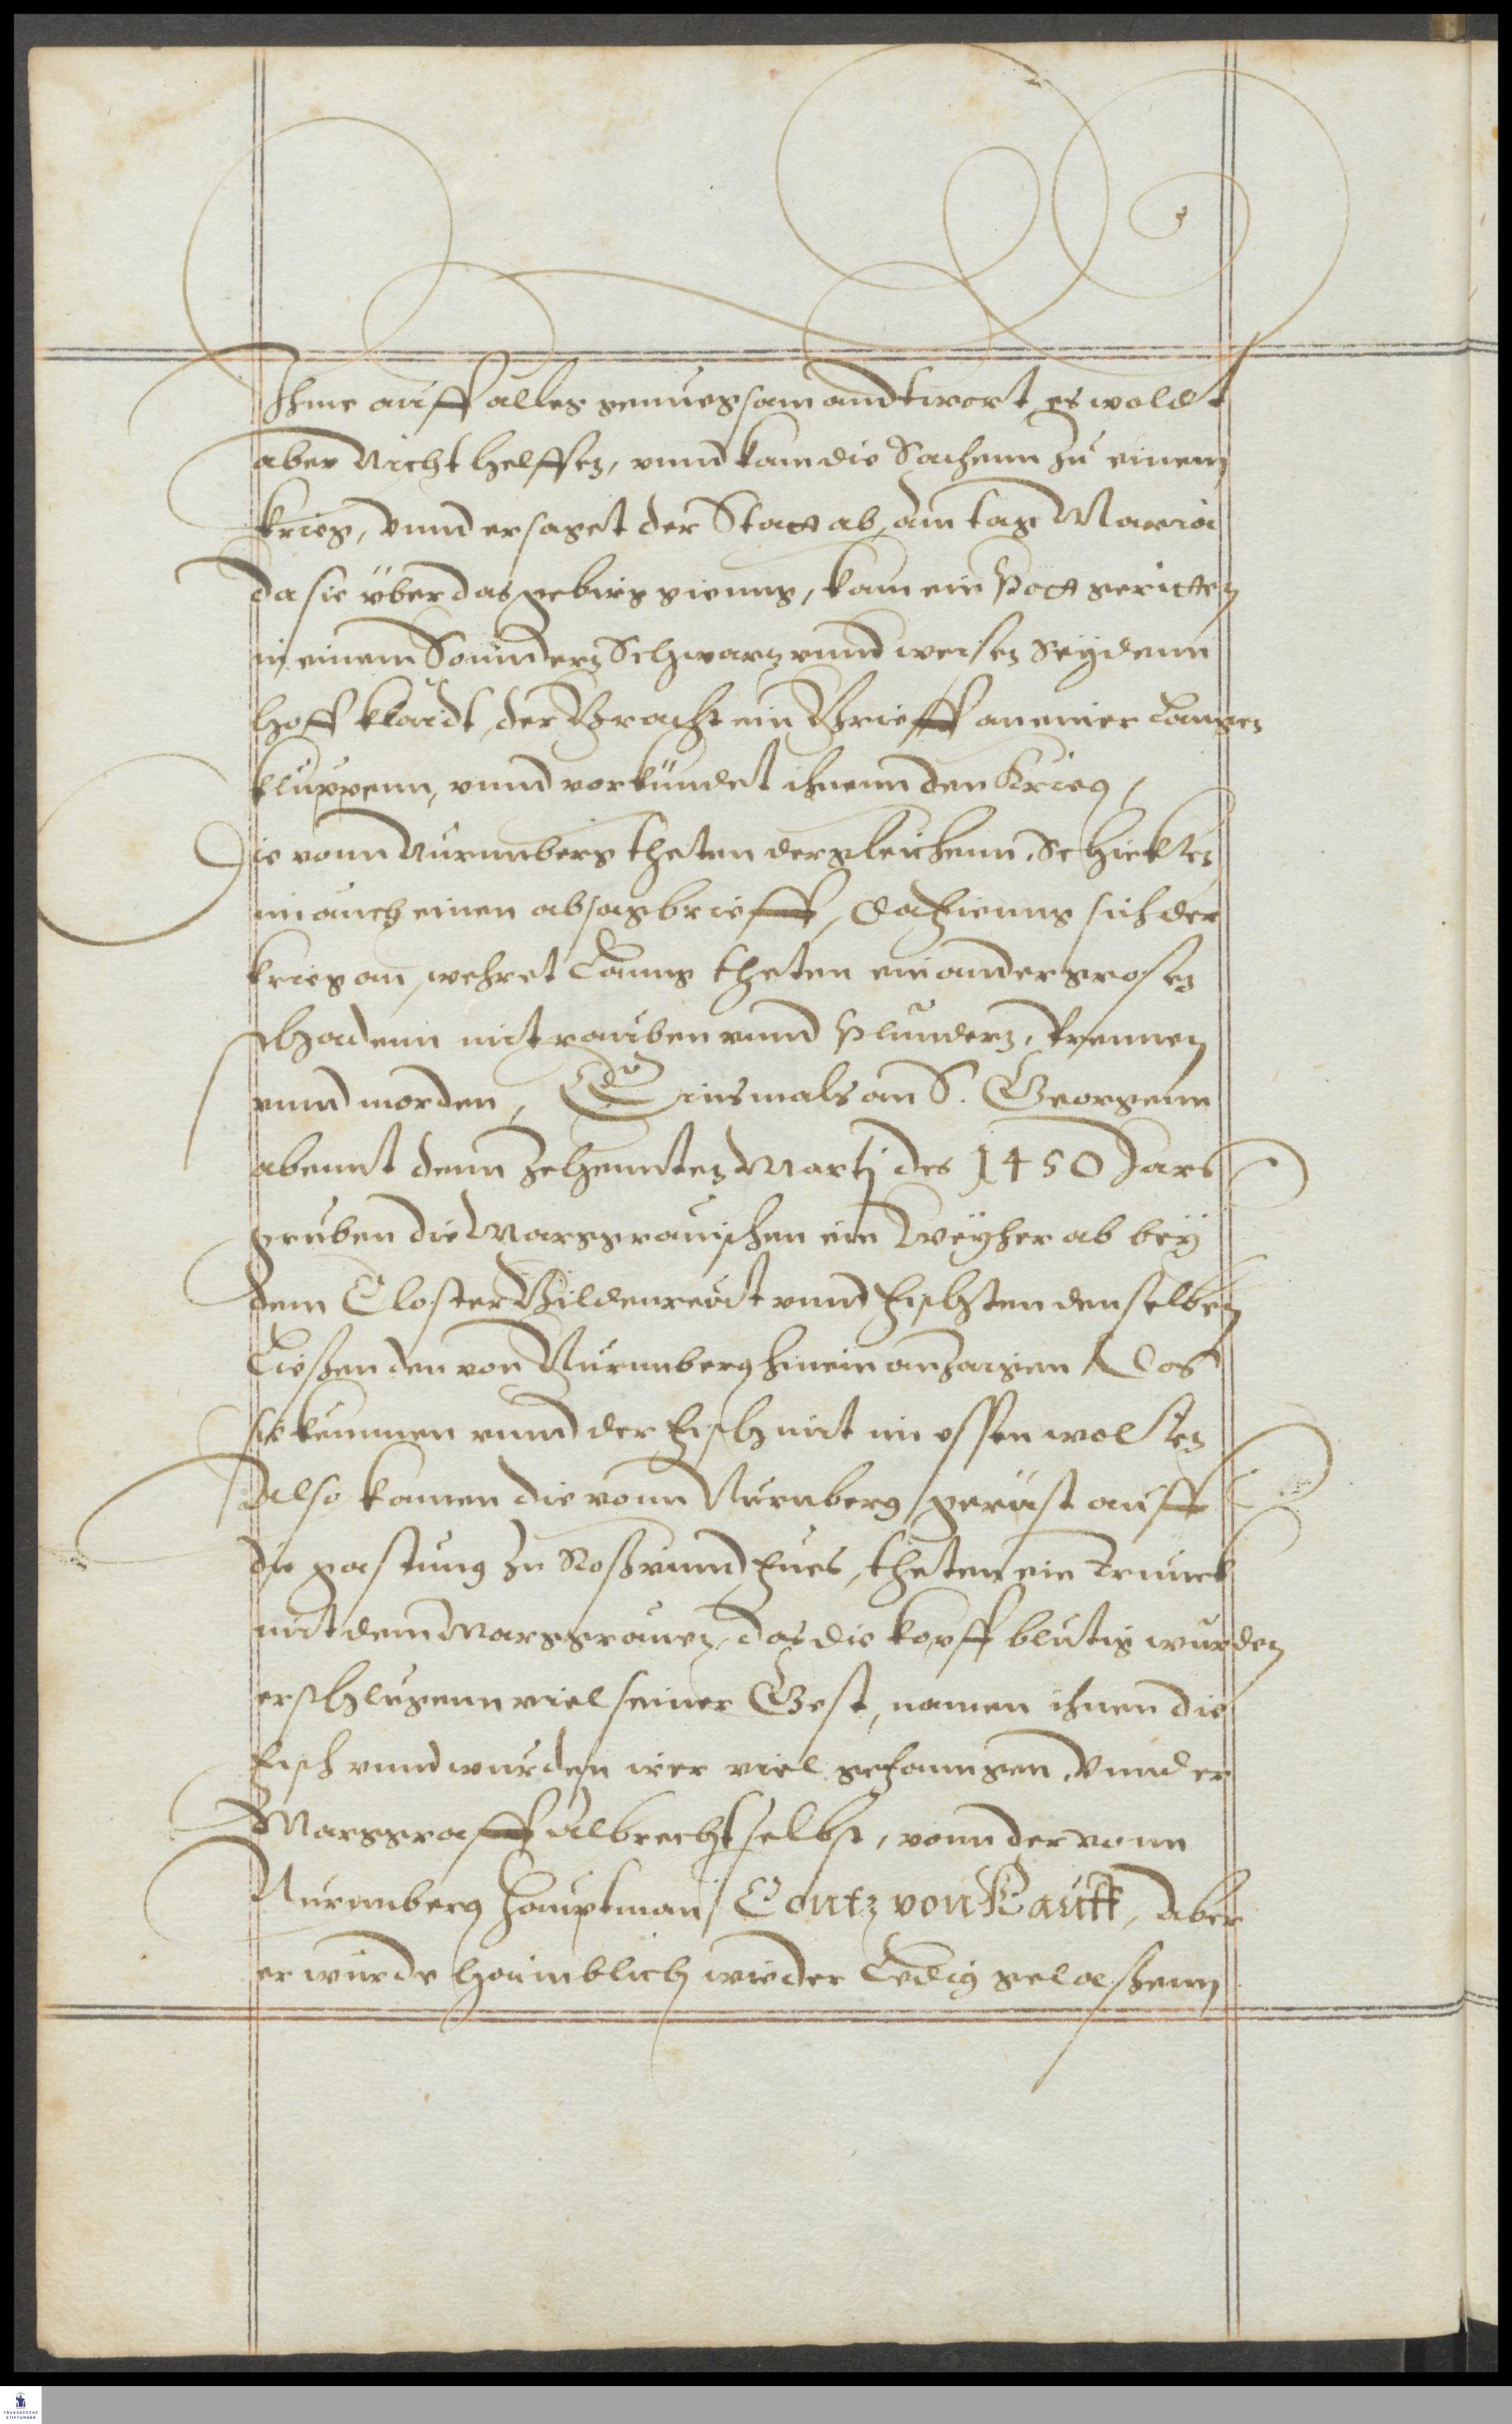 Ihme auff alles genuegsam andtwort, es woldt
aber Nicht helffen, vnnd kam die Sachenn zu einem
krieg, vnnd er saget der Statt ab, am tag Maria
da sie über das gebirg gienng, kam ein Pott geritten
in einem Sonndern Schwarz vnnd weisen Seydenn
hoff klaidt, der Bracht ein Brieff an einer Langen
kluppenn, vnnd verkündet ihnenn den Krieg,
Die vonn Nurmberg theten dergleichenn, Schickten
im auch einen absagbrieff, da fienng sich der
krieg an, wehret Lanng theten einander grosen
schadenn mit rauben vnnd Plundern, brennen
vnnd morden, Einsmals an S. Georgenn
abennt denn Zehennten Martj des 1450 Jars
gruben die Marggrauischen ein Weyher ab bey
dem Closter Billdenreüt vnnd fischten denselben
Liessen den von Nurmberg hinein ansagen Das
sie kummen vnnd der Fisch mit im essen wolten
Also kamen die vonn Nurnberg gerüst auff
die gastung zu Roß vnnd Fues, theten ein Trunck
mit dem Marggrauen, das die kopff blutig wurden
erschlugenn viel seiner Gest, namen ihnen die
Fisch vnnd wurden irer viel gefanngen, Vnnd er
Marggraff Albrecht selbst, vonn der vonn
Nurmberg Hauptman, Contz von Kauff, Aber
er wurde haimblich wieder Ledig gelassenn
FRANCKESCHE
STIFTUNGEN